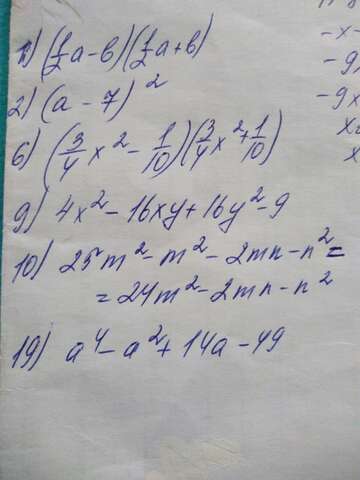 1) (1/2a-b)(1/2a+b)
2) (a-7)²
6) (3/4x²-1/10)(3/4x²+1/10)
9) 4x²-16xy+16y²-9
10) 25m²-m²-2mn-n²=
=24m²-2mn-n²
19) a⁴-a²+14a-49
-x-
-9
-9x
x
x